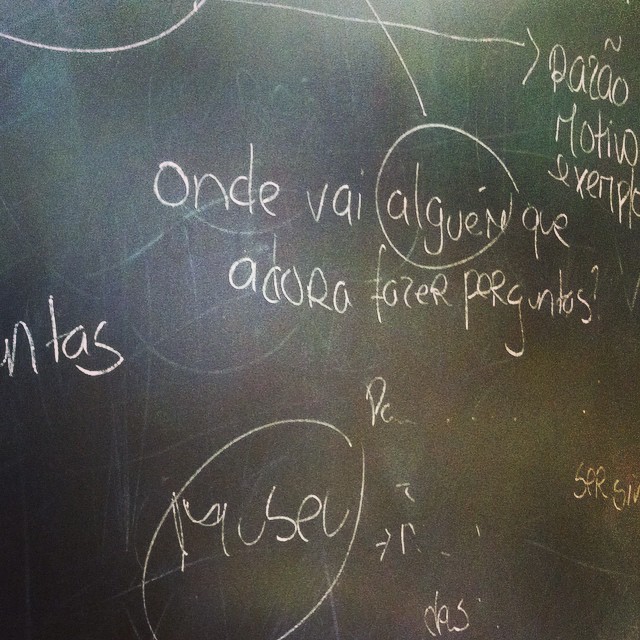 Razão
Motivo
exemplo
Onde vai alguém que
adora fazer perguntas?
ntas
Museu
ser sim
das